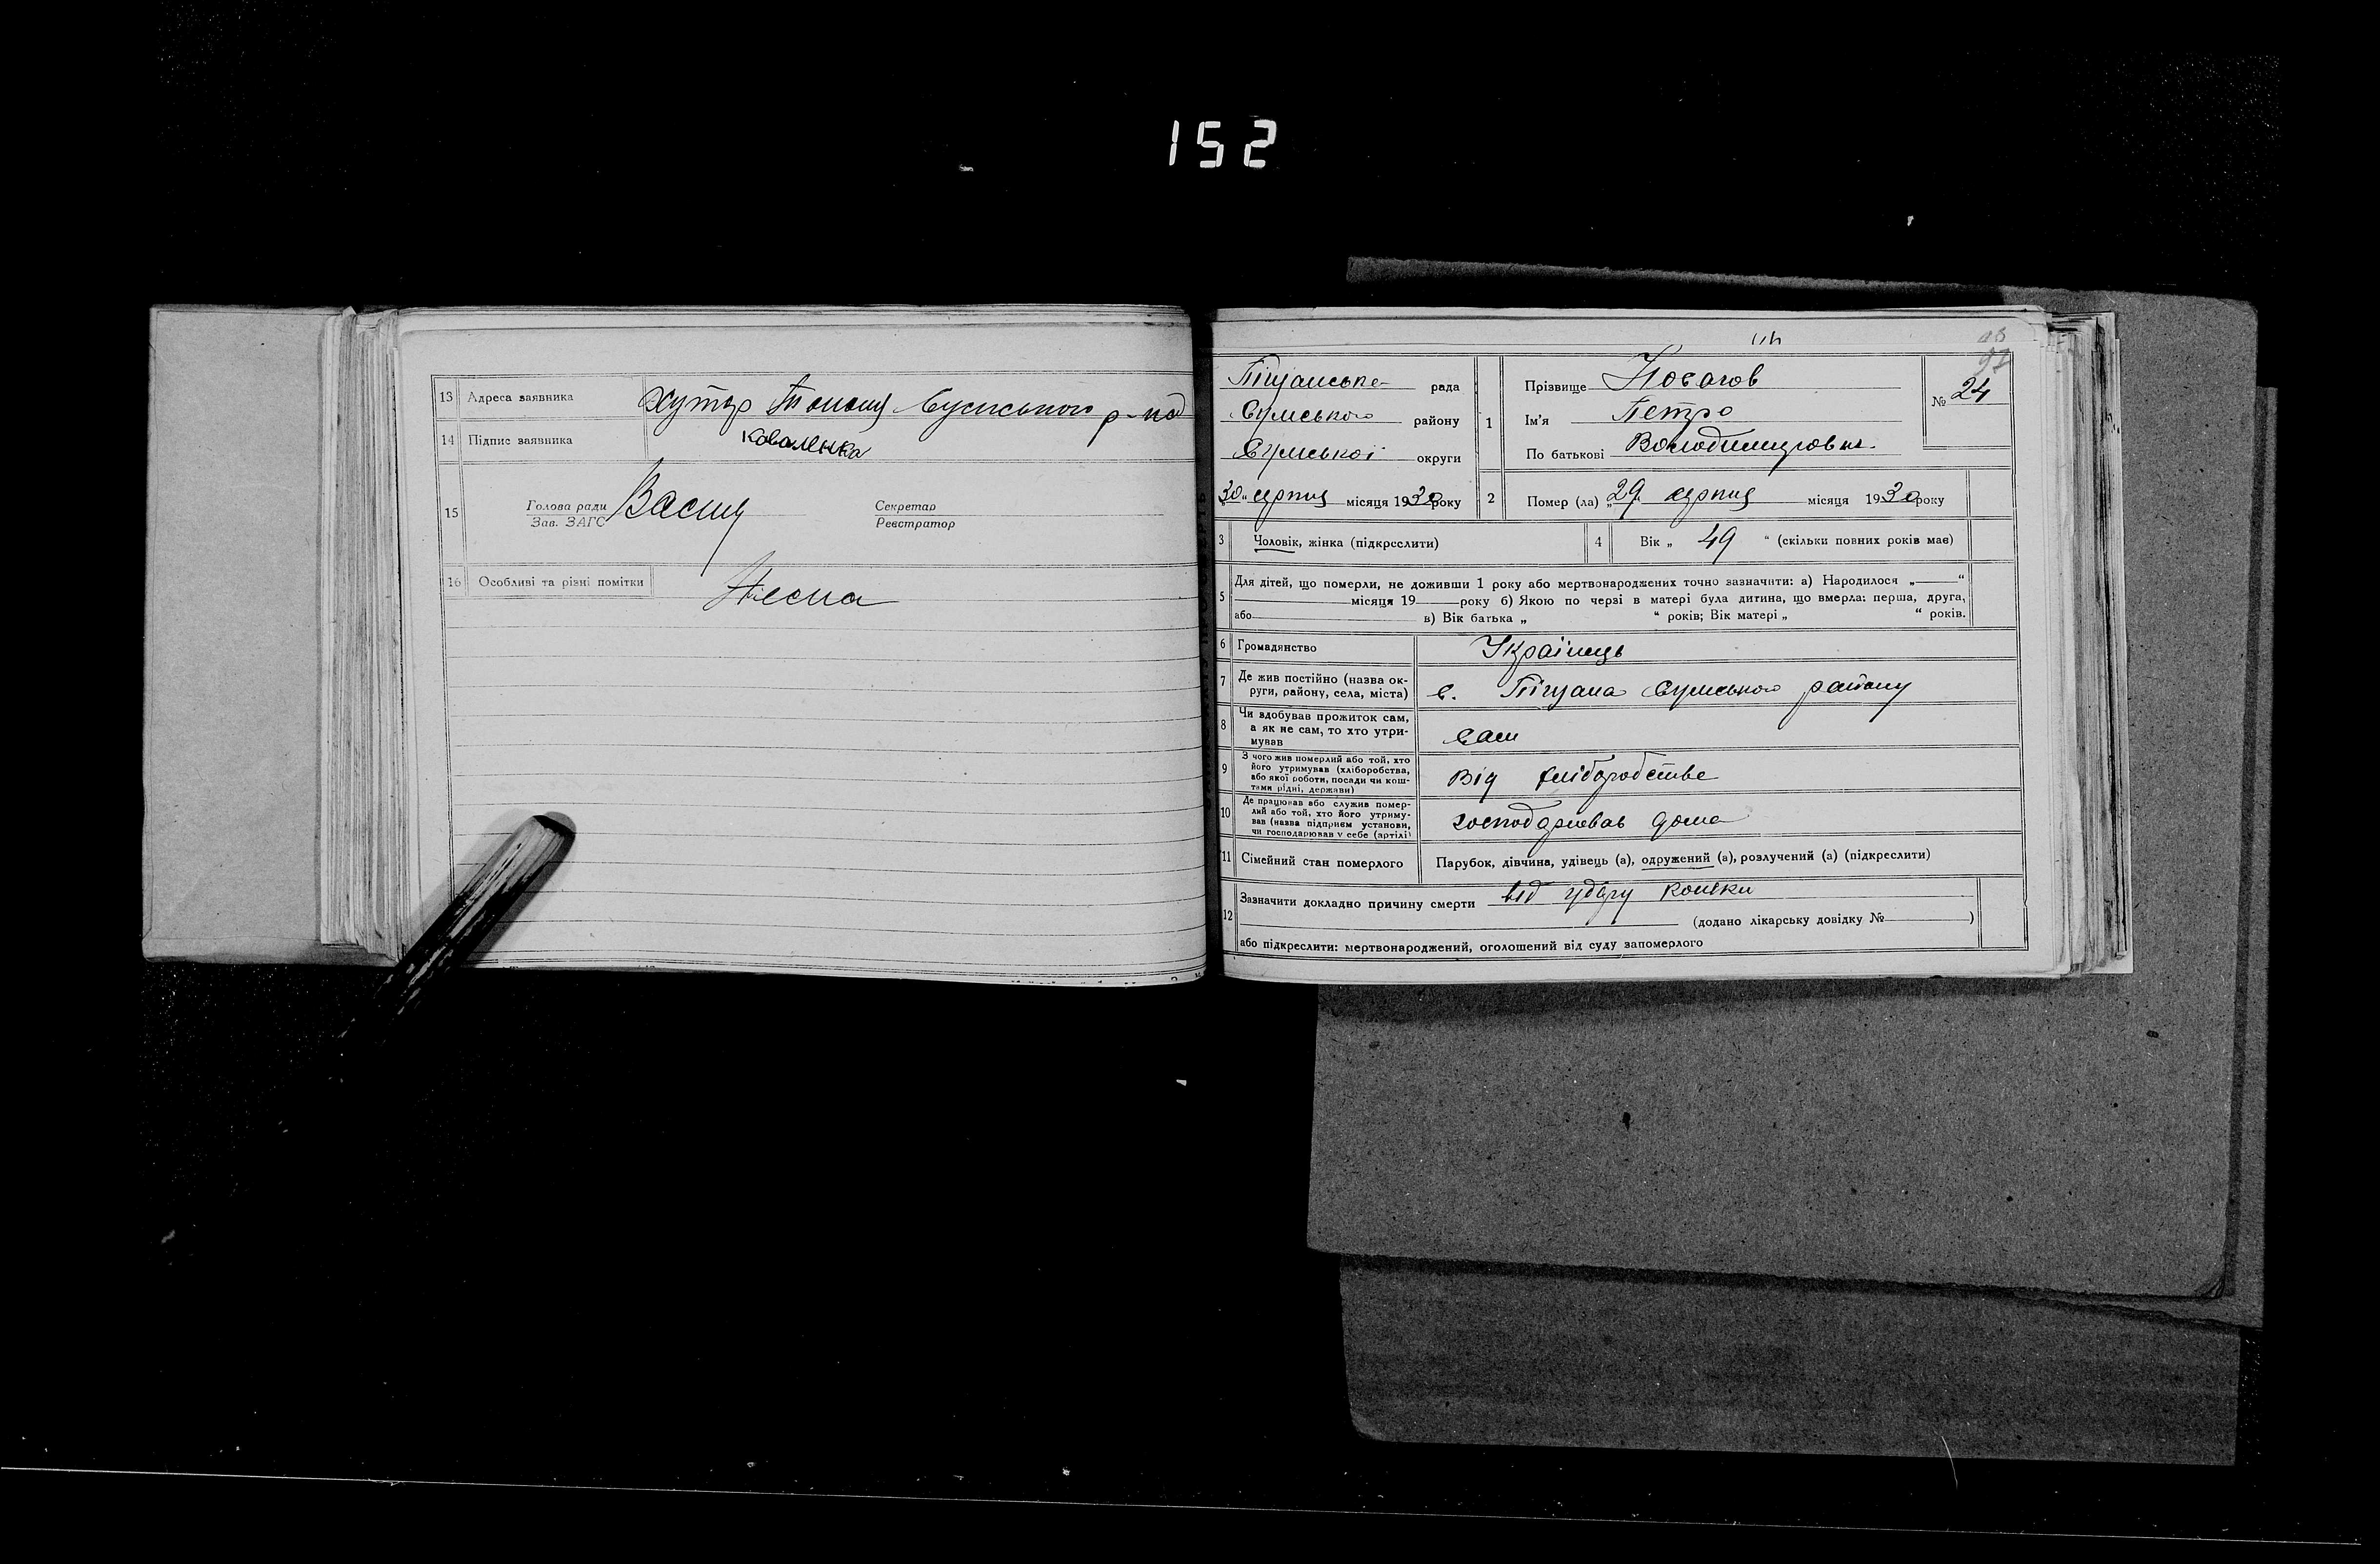 152
13 Адреса заявника Хутір Тополя Сумського р-на
14 Підпис заявника Коваленка
15 Голова ради
Зав. ЗАГС
Секретар
Реєстратор
16 Особливі та різні помітки
Піщанська рада
Сумського району
Сумської округи
„30“ серпня місяця 1930 року
1 Прізвище Носачов
Ім'я Петро
По батькові Володимирович
№ 24
2 Помер (ла) „29“ серпня місяця 1930 року
3 Чоловік, жінка (підкреслити)
4 Вік „ 49 “ (скільки повних років має)
5 Для дітей, що померли, не доживши 1 року або мертвонароджених точно зазначити: а) Народилося „ “
місяця 19 року б) Якою по черзі в матері була дитина, що вмерла: перша, друга,
або в) Вік батька „ “ років; Вік матері „ “ років.
6 Громадянство Українець
7 Де жив постійно (назва ок-
руги, району, села, міста) с. Піщана Сумського району
8 Чи вдобував прожиток сам,
а як не сам, то хто утри-
мував сам
9 З чого жив померлий або той, хто
його утримував (хліборобства,
або якої роботи, посади чи кош-
тами рідні, держави) від хліборобства
10 Де працював або служив помер-
лий або той, хто його утриму-
вав (назва підприєм установи,
чи господарював у себе (артілі) господарював дома
11 Сімейний стан померлого Парубок, дівчина, удівець (а), одружений (а), розлучений (а) (підкреслити)
12 Зазначити докладно причину смерти від удару
(додано лікарську довідку № )
або підкреслити: мертвонароджений, оголошений від суду запомерлого